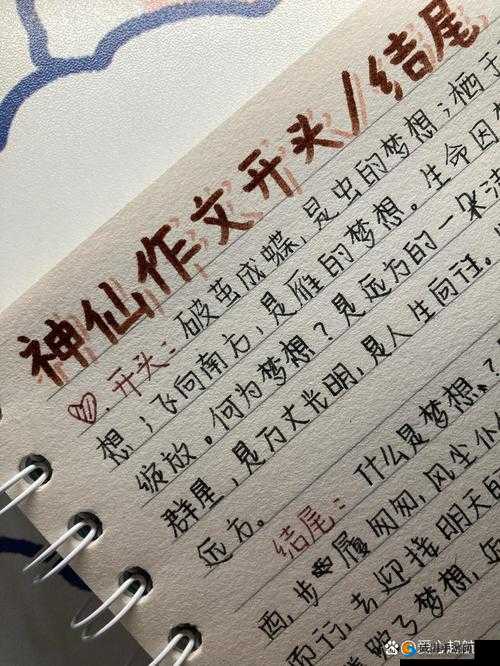 神仙作文开头/结尾
开头：破茧成蝶，是虫的梦想；栖于
想；飞向南方，是雁的梦想。生命因
绽放。何为梦想？是远方的一米
群星，是万丈光明，是人生向往。
远方。
结尾：什么是梦想？
西，步履匆匆，风尘仆仆
而行，去迎接明天
了梦想，
爱心起航